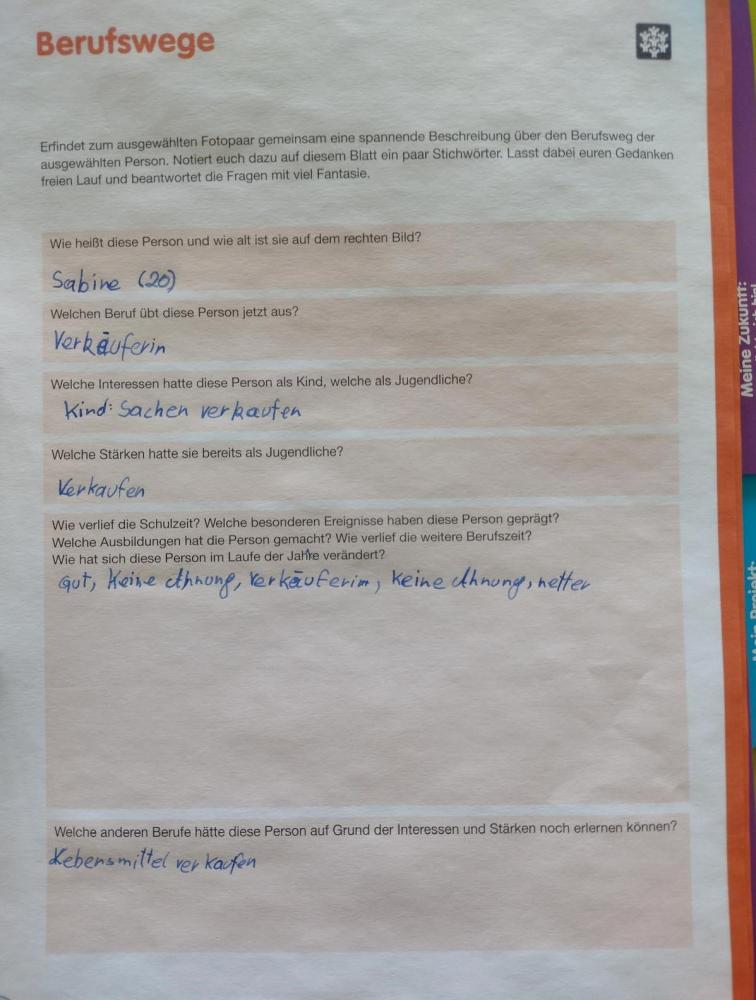 Berufswege
Erfindet zum ausgewählten Fotopaar gemeinsam eine spannende Beschreibung über den Berufsweg der
ausgewählten Person. Notiert euch dazu auf diesem Blatt ein paar Stichwörter. Lasst dabei euren Gedanken
freien Lauf und beantwortet die Fragen mit viel Fantasie.
Wie heißt diese Person und wie alt ist sie auf dem rechten Bild?
Sabine (20)
Welchen Beruf übt diese Person jetzt aus?
Verkäuferin
Welche Interessen hatte diese Person als Kind, welche als Jugendliche?
Kind: Sachen verkaufen
Welche Stärken hatte sie bereits als Jugendliche?
Verkaufen
Wie verlief die Schulzeit? Welche besonderen Ereignisse haben diese Person geprägt?
Welche Ausbildungen hat die Person gemacht? Wie verlief die weitere Berufszeit?
Wie hat sich diese Person im Laufe der Jahre verändert?
Gut, Keine Ahnung, Verkäuferin, Keine Ahnung, netter
Welche anderen Berufe hätte diese Person auf Grund der Interessen und Stärken noch erlernen können?
Lebensmittel verkaufen
Meine Zukunft:
Mein Projekt: